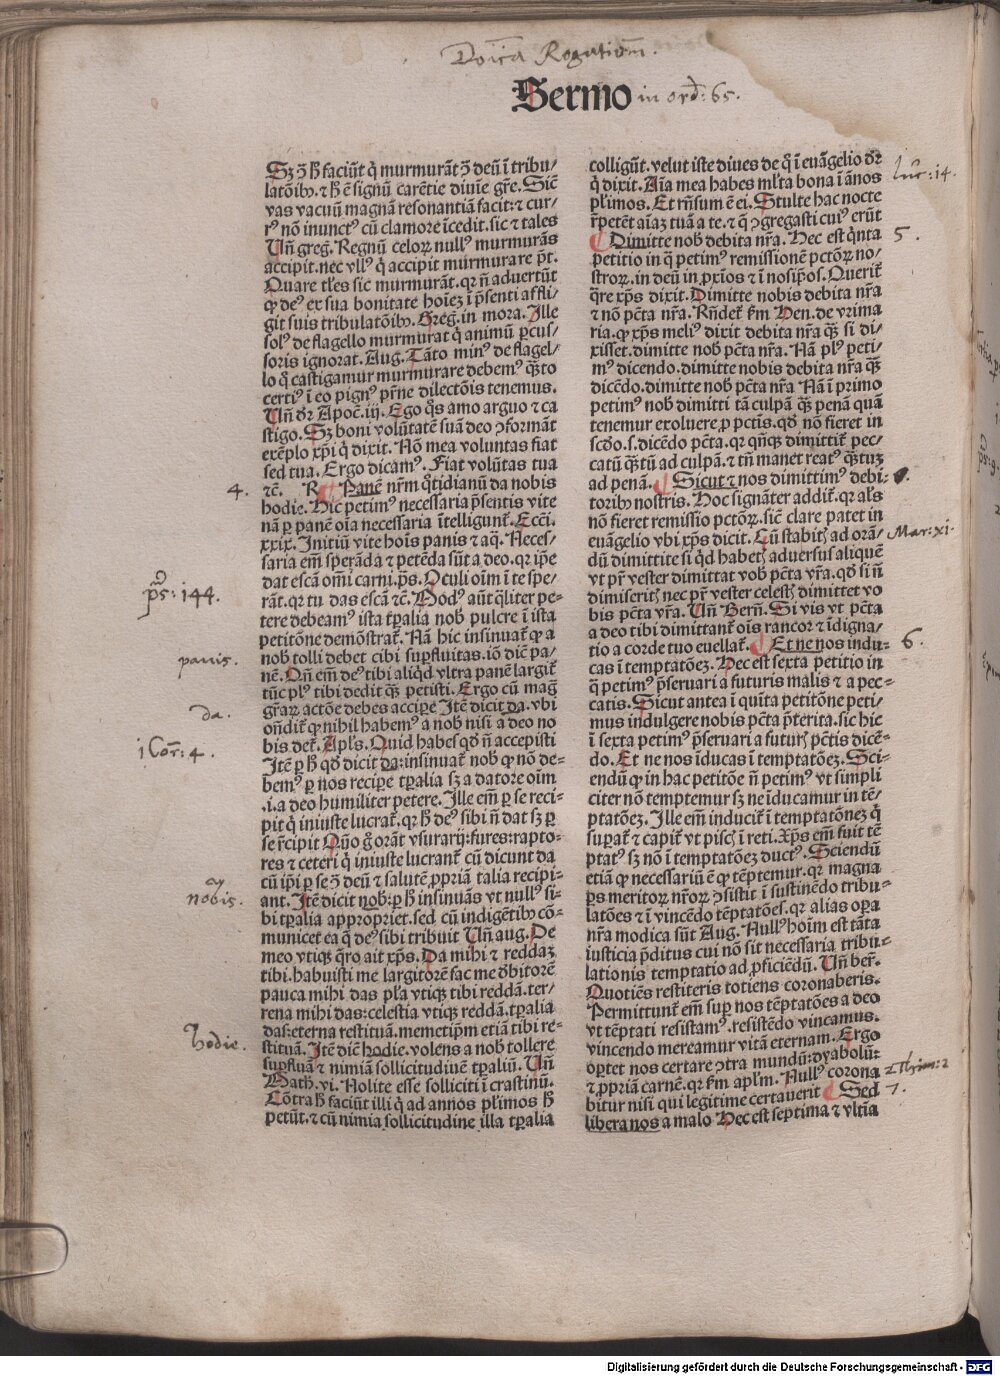 Doïca Rogationũ.
Sermo in ord: 65.
Sʒ ↄ̃ h̃ faciũt q̇ murmurãt ↄ̃ deũ ĩ tribu/
latõibꝰ. ⁊ h̃ ẽ signũ carẽtie diuie gr̃e. Sic̃
vas vacuũ magnã resonantiã facit: ⁊ cur/
rꝰ nõ inunctꝰ cũ clamore ĩcedit. sic ⁊ tales
Uñ greg̃. Regnũ celoꝝ nullꝰ murmurãs
accipit. nec vllꝰ q̇ accipit murmurare p̃t.
Quare tl̃es sic murmurãt. qꝛ ñ aduertũt
ꝙ deꝰ ex sua bonitate hoĩeʒ ĩ p̃senti affli/
git suis tribulatõibꝰ. Greg̃. in mora. Ille
solꝰ de flagello murmurat q̇ animũ ꝑcus/
soris ignorat. Aug. Tãto minꝰ de flagel/
lo q̇ castigamur murmurare debemꝰ q̃ʒto
certiꝰ ĩ eo pignꝰ pr̃ne dilectõis tenemus.
Uñ dr̃ Apoc̃. iij. Ego q̃s amo arguo ⁊ ca
stigo. Sʒ boni volũtatẽ suã deo ↄformãt
exẽplo xp̃i q̇ dixit. Nõ mea voluntas fiat
sed tua. Ergo dicamꝰ. Fiat volũtas tua
⁊c̃. R Panẽ nr̃m q̃tidianũ da nobis
4.
hodie. Hic petimꝰ necessaria p̃sentis vite
nã ꝑ panẽ oĩa necessaria ĩtelligunt̃. Ecc̃i.
xxix. Initiũ vite hoĩs panis ⁊ aq̃. Neces/
saria em̃ sperãda ⁊ petẽda sũt a deo. qꝛ ip̃e
dat escã om̃i carni. p̃s. Oculi oĩm ĩ te spe/
ps: 144.
rãt. qꝛ tu das escã ⁊c̃. Modꝰ aũt q̃liter pe/
tere debeamꝰ ista tꝑalia nob̃ pulcre ĩ ista
petitõne demõstrat̃. Nã hic insinuat̃ ꝙ a
nob̃ tolli debet cibi suꝑfluitas. iõ diẽ pa/
panis.
nẽ. Qñ em̃ deꝰ tibi aliq̇d vltra panẽ largit̃
tũc plꝰ tibi dedit q̃ʒ petisti. Ergo cũ mag̃
gr̃aꝝ actõe debes accipe Itẽ dicit da. vbi
da.
oñdit̃ ꝙ nihil habemꝰ a nob̃ nisi a deo no
bis det̃. Apl̃s. Quid habes qd̃ ñ accepisti
1 Cor: 4.
Itẽ ꝑ h̃ qd̃ dicit da: insinuat̃ nob̃ ꝙ nõ de=
bemꝰ ꝑ nos recipe tꝑalia sʒ a datore oĩm
.i. a deo humiliter petere. Ille em̃ ꝑ se reci=
pit q̇ iniuste lucrat̃. qꝛ h̃ deꝰ sibi ñ dat sʒ ꝑ
se r̃cipit Quõ g̃ orãt vsurarij: fures: rapto=
res ⁊ ceteri q̇ iniuste lucrant̃ cũ dicunt da
cũ ip̃i ꝑ se ↄ̃ deũ ⁊ salutẽ ꝓpriã talia recipi=
ant. Itẽ dicit nob̃: ꝑ h̃ insinuãs vt nullꝰ si=
nobis.
bi tꝑalia appropriet. sed cũ indigẽtibꝰ cõ=
municet ea q̃ deꝰ sibi tribuit Uñ aug. De
meo vtiqꝫ q̃ro ait xp̃s. Da mihi ⁊ reddaʒ
tibi. habuisti me largitorẽ fac me d̃bitorẽ
pauca mihi das pl̃a vtiqꝫ tibi reddã. ter/
rena mihi das: celestia vtiqꝫ reddã. tꝑalia
das: eterna restituã. memetip̃m etiã tibi re=
stituã. Itẽ diẽ hodie. volens a nob̃ tollere
hodie.
suꝑfluã ⁊ nimiã sollicitudinẽ tꝑaliũ. Uñ
Math̃. vi. Nolite esse solliciti ĩ crastinũ.
Cõtra h̃ faciũt illi q̇ ad annos pl̃imos h̃
petũt. ⁊ cũ nimia sollicitudine illa tꝑalia
colligũt. velut iste diues de q̇ ĩ euãgelio dr̃
Luc: 14.
q̇ dixit. Aĩa mea habes ml̃ta bona ĩ ãnos
pl̃imos. Et rñsum ẽ ei. Stulte hac nocte
r̃petẽt aĩaʒ tuã a te. ⁊ q̃ ↄgregasti cuiꝰ erũt
Dimitte nob̃ debita nr̃a. Hec est q̃nta
5.
petitio in q̃ petimꝰ remissionẽ pctõꝝ no/
stroꝝ. in deũ in ꝓxĩos ⁊ ĩ nosip̃os. Querit̃
q̃re xp̃s dixit. Dimitte nobis debita nr̃a
⁊ nõ pcta nr̃a. Rñdet̃ s̃m Hen. de vrima
ria. ꝙ xp̃s meliꝰ dixit debita nr̃a q̃ʒ si di/
xisset. dimitte nob̃ pcta nr̃a. Nã plꝰ peti/
mꝰ dicendo. dimitte nobis debita nr̃a q̃ʒ
dicẽdo. dimitte nob̃ pcta nr̃a Nã ĩ primo
petimꝰ nob̃ dimitti tã culpã q̃ʒ penã quã
tenemur exoluere ꝓ pctis. qd̃ nõ fieret in
scd̃o. s. dicẽdo pcta. qꝛ qñqꝫ dimittit̃ pec/
catũ q̃ʒtũ ad culpã. ⁊ tñ manet reatꝰ q̃ʒtuʒ
ad penã. Sicut ⁊ nos dimittimꝰ debi=
toribꝰ nostris. Hoc signãter addit̃. qꝛ al̃s
nõ fieret remissio pctõꝝ. sic̃ clare patet in
euãgelio vbi xp̃s dicit. Cũ stabitꝭ ad orã/
Mar: xi.
dũ dimittite si q̇d habetꝭ aduersus aliquẽ
vt pr̃ vester dimittat vob̃ pcta vr̃a. qd̃ si ñ
dimiseritꝭ nec pr̃ vester celestꝭ dimittet vo
bis pcta vr̃a. Uñ Berñ. Si vis vt pcta
a deo tibi dimittant̃ oĩs rancor ⁊ ĩdigna/
tio a corde tuo euellat̃. Et ne nos indu=
6.
cas ĩ temptatõeʒ. Hec est sexta petitio in
q̃ petimꝰ p̃seruari a futuris malis ⁊ a pec=
catis. Sicut antea ĩ quĩta petitõne peti/
mus indulgere nobis pcta p̃terita. sic hic
ĩ sexta petimꝰ p̃seruari a futurꝭ pctis dicẽ=
do. Et ne nos ĩducas ĩ temptatõeʒ. Sci=
endũ ꝙ in hac petitõe ñ petimꝰ vt simpli
citer nõ temptemur sʒ ne ĩducamur in tẽ/
ptatõeʒ. Ille em̃ inducit̃ ĩ temptatõneʒ q̇
suꝑat̃ ⁊ capit̃ vt piscꝭ ĩ reti. Xp̃s em̃ fuit tẽ
ptatꝰ sʒ nõ ĩ temptatõeʒ ductꝰ. Sciendũ
etiã ꝙ necessariũ ẽ ꝙ tẽptemur. qꝛ magna
ꝑs meritoꝝ nr̃oꝝ ↄsistit ĩ sustinẽdo tribu=
latões ⁊ ĩ vincẽdo tẽptatões. qꝛ alias oꝑa
nr̃a modica sũt Aug. Nullꝰ hoĩm est tãta
iusticia p̃ditus cui nõ sit necessaria tribu=
lationis temptatio ad ꝓficiẽdũ. Uñ ber̃.
Quotiẽs restiteris totiens coronaberis.
Permittunt̃ em̃ suꝑ nos tẽptatões a deo
vt tẽptati resistamꝰ. resistẽdo vincamus.
vincendo mereamur vitã eternam. Ergo
oꝑtet nos certare ↄtra mundũ: dyabolũ:
⁊ ꝓpriã carnẽ. qꝛ s̃m apl̃m. Nullꝰ corona
2 Thim: 2
bitur nisi qui legitime certauerit Sed
7.
libera nos a malo Hec est septima ⁊ vltĩa
Digitalisierung gefördert durch die Deutsche Forschungsgemeinschaft - DFG